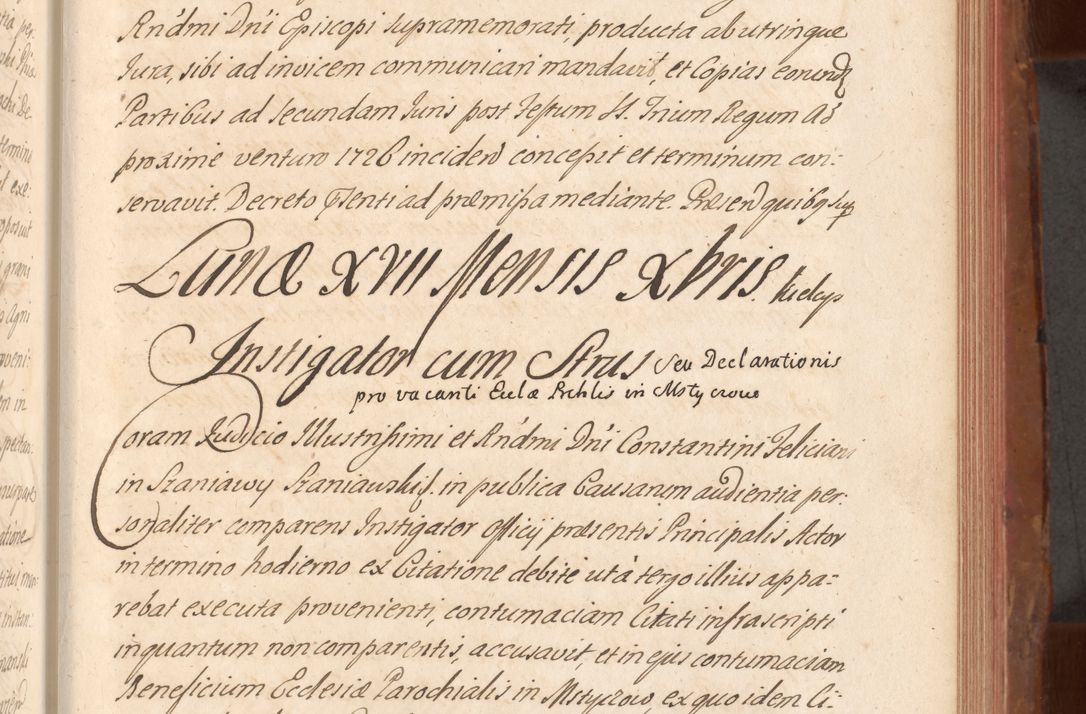 Rndmi Dni Episcopi supramemorati, producta ab utrinque
Iura, sibi ad invicem communicari mandavit, et Copias eorund
Partibus ad secundam Iuris post Festum SS. Trium Regum A̅o̅
proxime venturo 1726 inciden concepit et terminum con:
servavit. Decreto psenti ad præmissa mediante. Præsen quibq sup
Lunæ XVII Mensis Xbris.
Instigator cum Strus seu Declarationis
pro vacanti Eccla Prchlis in Mstyczow
Coram Iudicio Illustrissimi et Rndmi Dni Constantini Feliciani
in Szaniawy Szaniawski. in publica Causarum audientia per:
sonaliter comparens Instigator Officij præsentis Principalis Actor
in termino hodierno ex Citatione debite uti a tergo illius appa=
rebat executa provenienti, contumaciam Citati infrascripti
inquantum non comparentis, accusavit, et in ejus contumaciam
Beneficium Ecclesiæ Parochialis in Mstyczow, ex quo idem Ci=